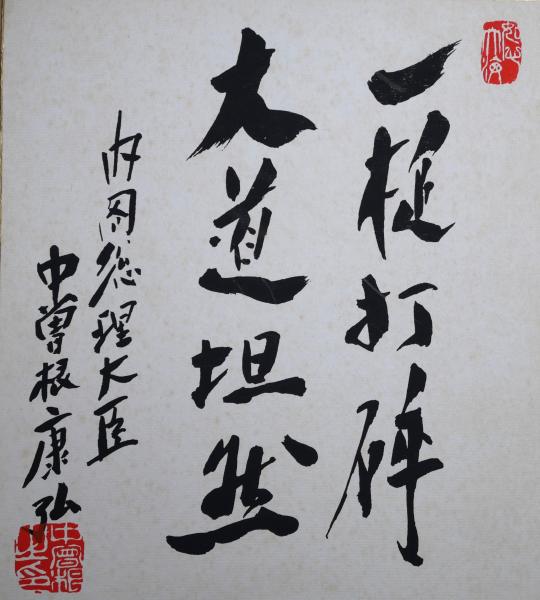 一槌打碎
大道坦然
内閣總理大臣
中曽根康弘